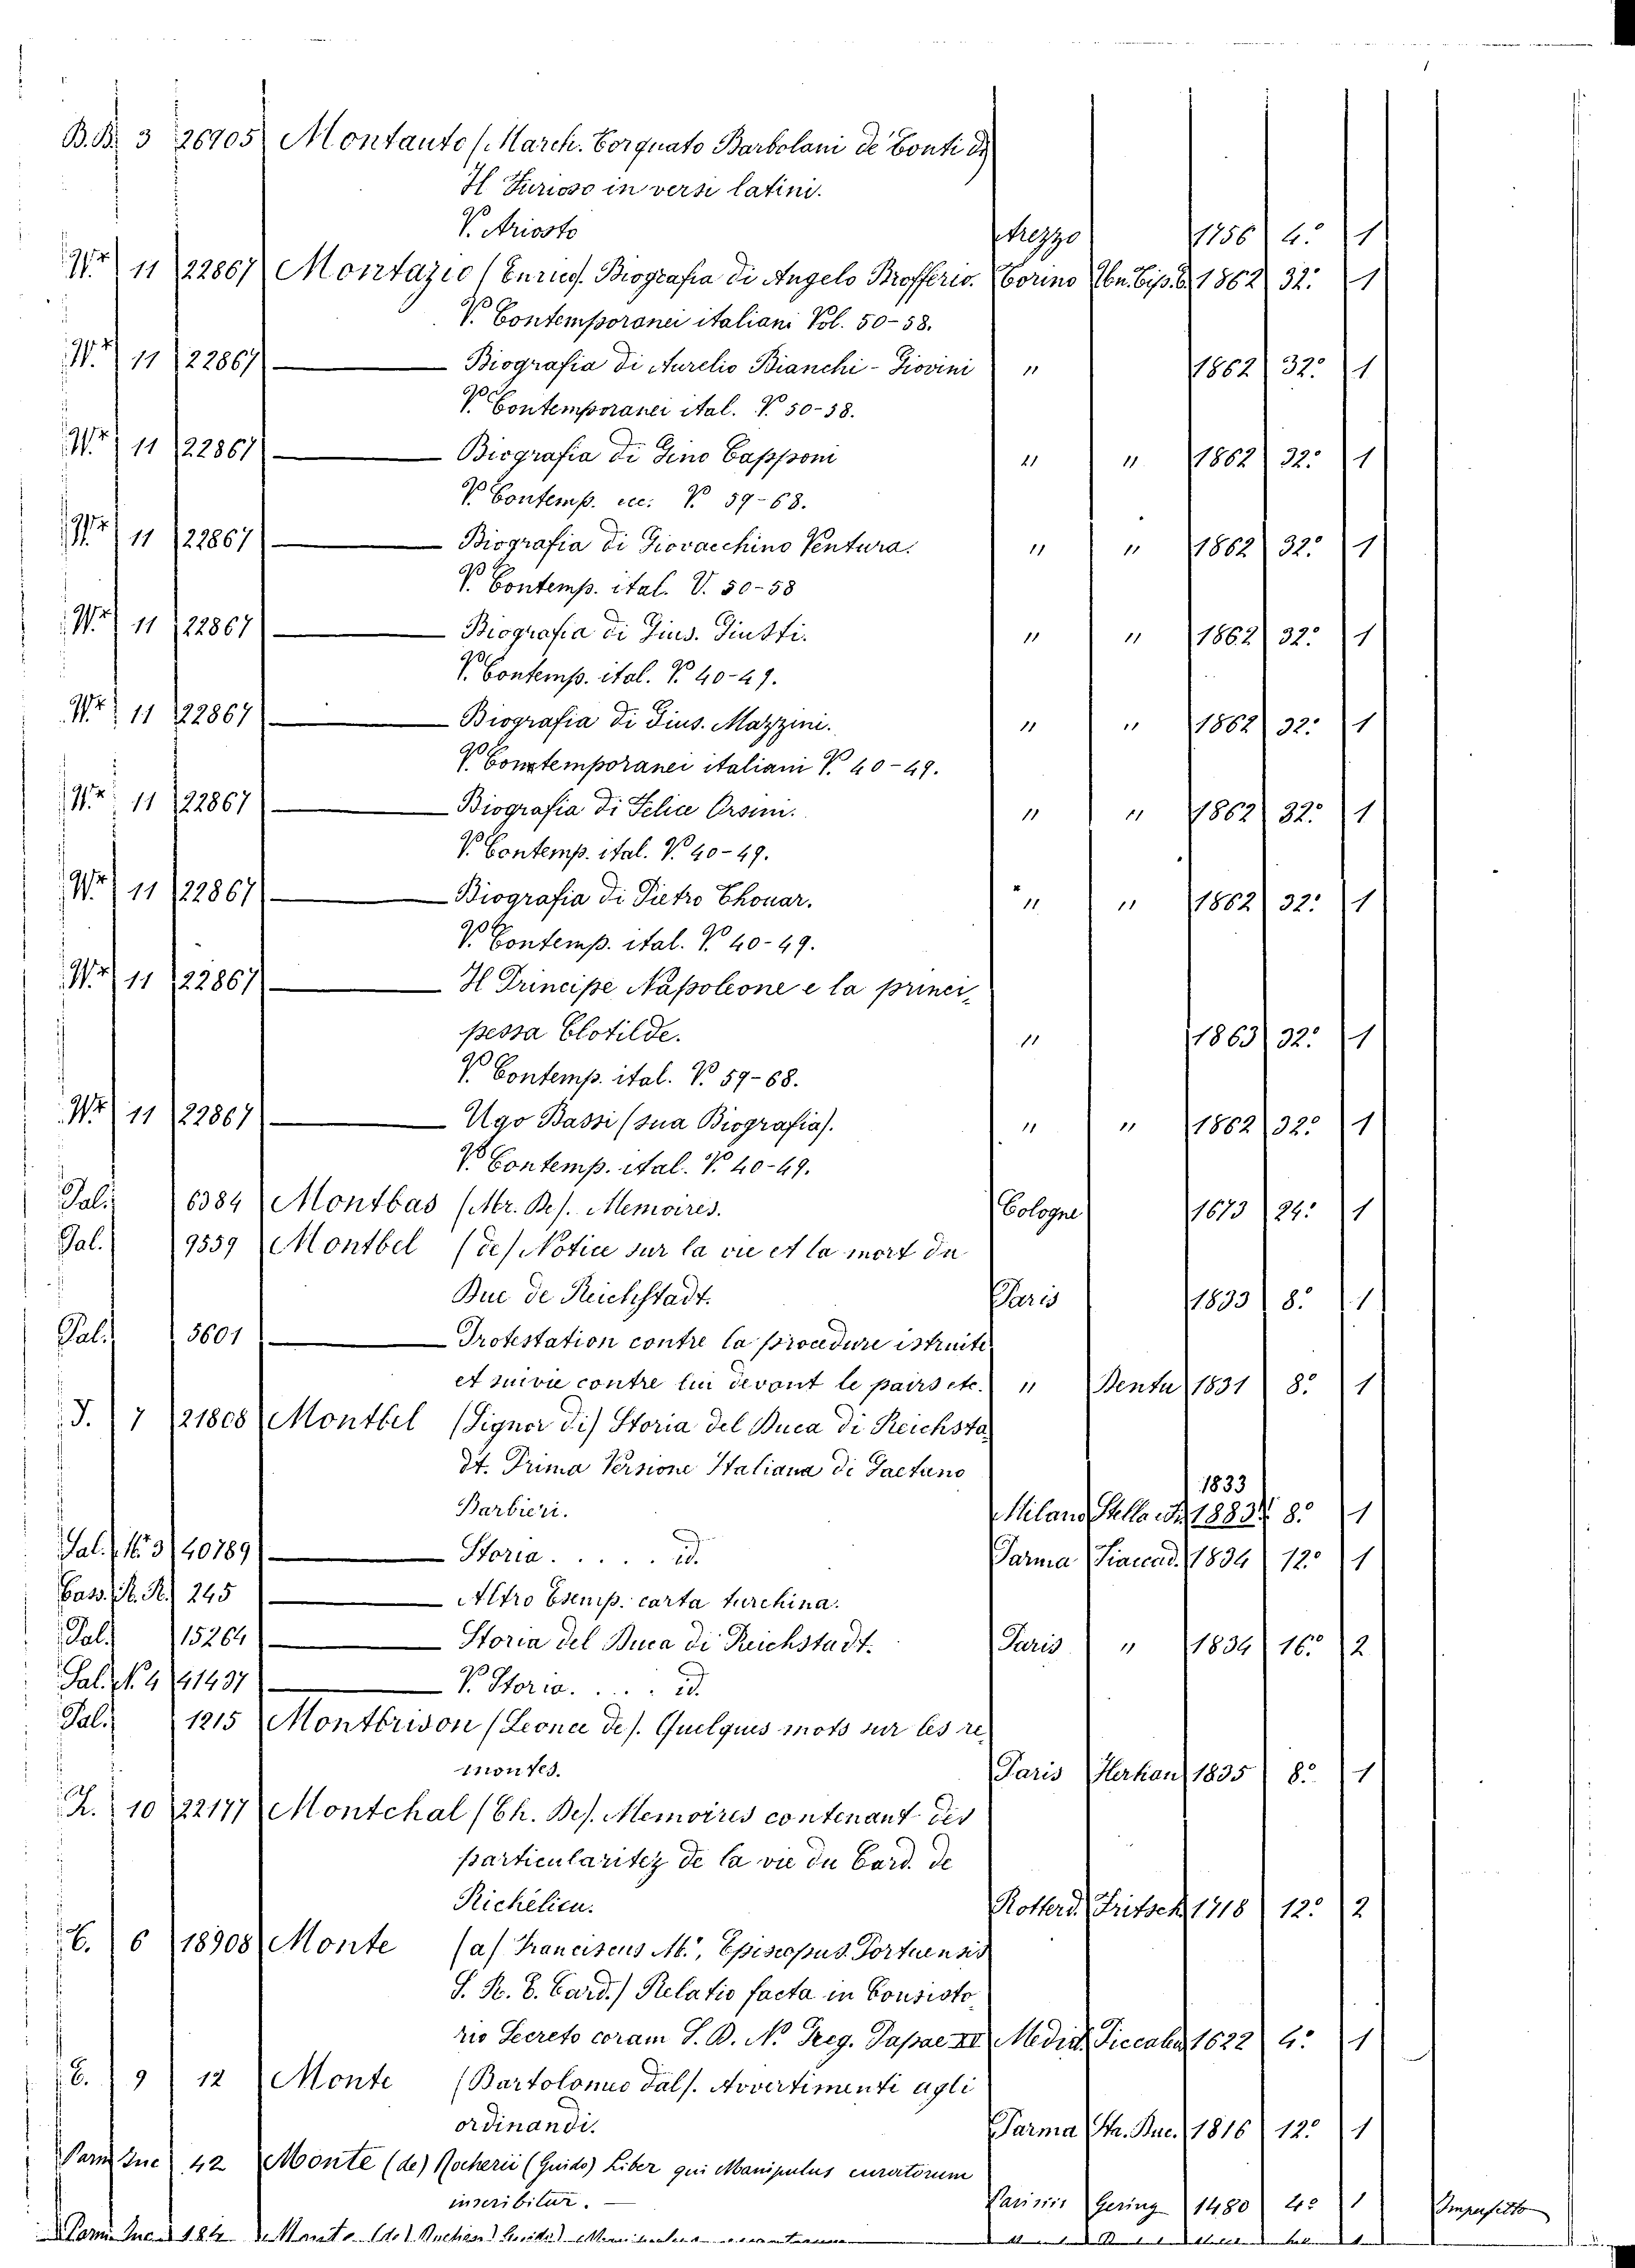 B.B. 3 26905 Montauto (March. Torquato Barbolani de' Conti di)
Il Furioso in versi latini.
V. Ariosto Arezzo 1756 4.° 1
W.r 11 22867 Montazio (Enrico). Biografia di Angelo Brofferio. Torino Un. Tip. E. 1862 32.° 1
V. Contemporanei italiani Vol. 50-58.
W.r 11 22867 Biografia di Aurelio Bianchi-Giovini " 1862 32.° 1
V. Contemporanei ital. V. 50-58.
W.r 11 22867 Biografia di Gino Capponi " " 1862 32.° 1
V. Contemp. ecc. V. 59-68.
W.r 11 22867 Biografia di Giovacchino Ventura. " " 1862 32.° 1
V. Contemp. ital. V. 50-58
W.r 11 22867 Biografia di Gius. Giusti. " " 1862 32.° 1
V. Contemp. ital. V. 40-49.
W.r 11 22867 Biografia di Gius. Mazzini. " " 1862 32.° 1
V. Contemporanei italiani V. 40-49.
W.r 11 22867 Biografia di Felice Orsini. " " 1862 32.° 1
V. Contemp. ital. V. 40-49.
W.r 11 22867 Biografia di Pietro Thouar. " " 1862 32.° 1
V. Contemp. ital. V. 40-49.
W.r 11 22867 Il Principe Napoleone e la princi-
pessa Clotilde. " 1863 32.° 1
V. Contemp. ital. V. 59-68.
W.r 11 22867 Ugo Bassi (sua Biografia). " " 1862 32.° 1
V. Contemp. ital. V. 40-49.
Pal. 6384 Montbas (Mr. De). Memoires. Cologne 1673 24.° 1
Pal. 9559 Montbel (de) Notice sur la vie et la mort du
Duc de Reichstadt. Paris 1833 8.° 1
Pal. 5601 Protestation contre la procedure istruite
et suivie contre lui devant le pairs etc. " Dentu 1831 8.° 1
J. 7 21808 Montbel (Signor di) Storia del Duca di Reichsta
dt. Prima Versione Italiana di Gaetano
1833
Barbieri. Milano Stella 1883 8.° 1
Sal. N. 3 40789 Storia . . . . . id. Parma Fiaccad. 1834 12.° 1
Cass. R. R. 245 Altro Esemp. carta turchina.
Pal. 15264 Storia del Duca di Reichstadt. Paris " 1834 16.° 2
Sal. N. 4 41437 V. Storia. . . . . id.
Pal. 1215 Montbrison (Leonce de). Quelques mots sur les re
montes. Paris Herhan 1835 8.° 1
Z. 10 22177 Montchal (Ch. De). Memoires contenant des
particularitez de la vie du Card. de
Richelieu. Rotterd. Fritsch 1718 12.° 2
6 18908 Monte (a) Franciscus M., Episcopus Portuensis
S. R. E. Card.) Relatio facta in Consisto
rio Secreto coram S. D. N. Greg. Papae XV Mediol. 1622 4.° 1
9 12 Monte (Bartolomeo dal). Avvertimenti agli
ordinandi. Parma St. Duc. 1816 12.° 1
Parm Inc 42 Monte (de) Rocherii (Guido) Liber qui Manipulus curatorum
inscribitur. Parisiis Gering 1480 4.° 1 Imperfetto